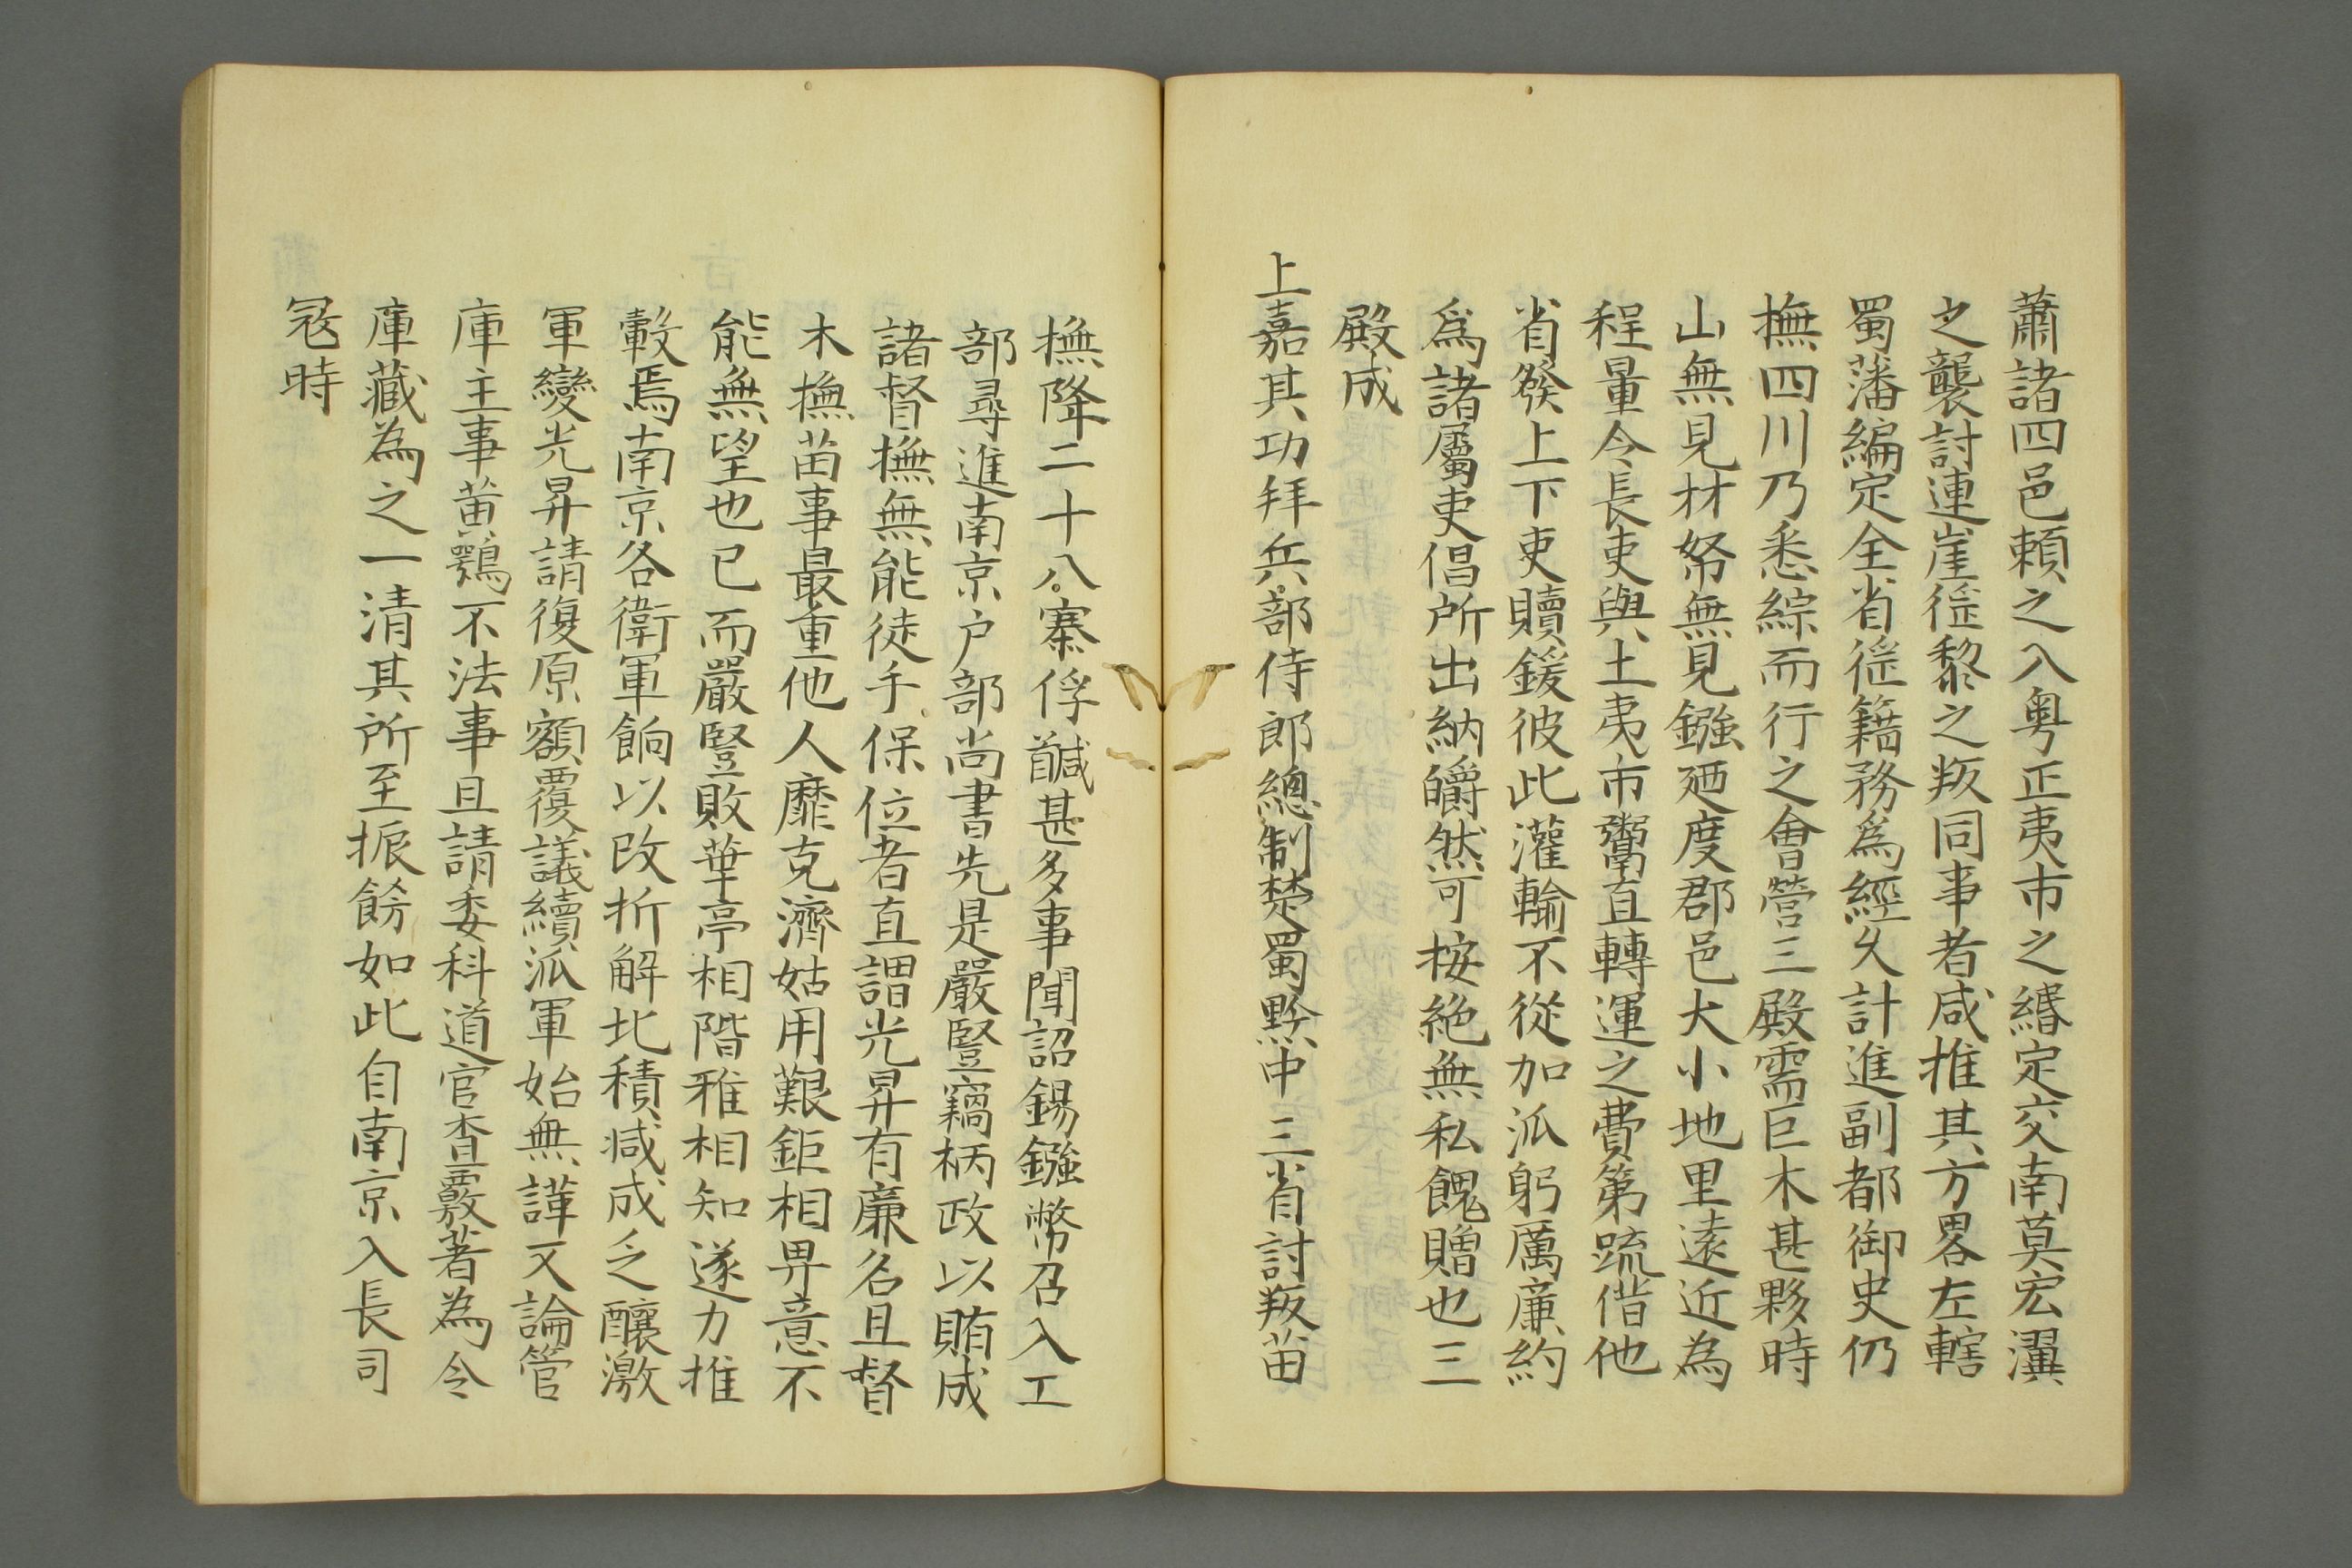 蕭諸四邑賴之入粵正夷市之緡定交南莫宏瀷
之襲討連崖徭黎之叛同事者咸推其方畧左轄
蜀藩編定全省徭籍務爲經久計進副都御史仍
撫四川乃悉綜而行之會營三殿需巨木甚夥時
山無見材帑無見鏹廼度郡邑大小地里遠近為
程量令長吏與土夷市鬻直轉運之費第疏偕他
省發上下吏贖鍰彼此灌輸不從加派躬厲廉約
爲諸屬吏倡所出納皭然可按絕無私餽贈也三
殿成
上嘉其功拜兵部侍郎總制楚蜀黔中三省討叛苗
撫降二十八寨俘馘甚多事聞詔錫鏹幣召入工
部尋進南京户部尚書先是嚴豎竊柄政以賄成
諸督撫無能徒手保位者直謂光昇有廉名且督
木撫苗事最重他人靡克濟姑用艱鉅相畀意不
能無望也已而嚴豎敗華亭相階雅相知遂力推
轂焉南京各衛軍餉以改折解北積减成乏釀激
軍變光昇請復原額覆議續派軍始無譁又論管
庫主事黄鶚不法事且請委科道官查覈著為令
庫藏為之一清其所至振飭如此自南京入長司
冦時